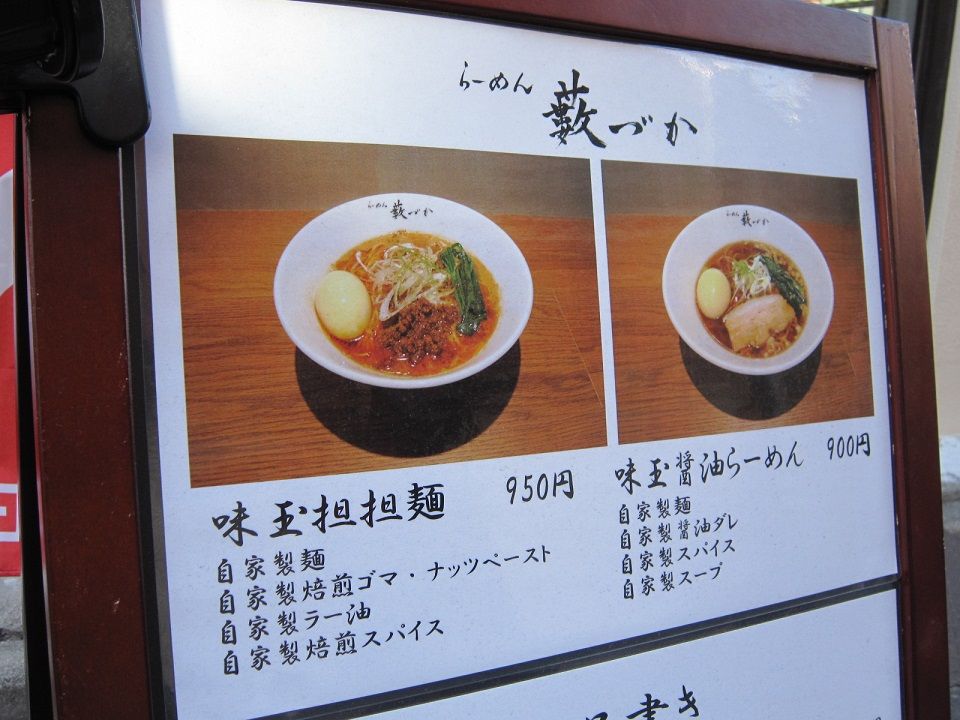 らーめん 藪づか
らーめん 藪づか
らーめん 藪づか
味玉担担麺 950円
自家製麺
自家製焙煎ゴマ・ナッツペースト
自家製ラー油
自家製焙煎スパイス
味玉醤油らーめん 900円
自家製麺
自家製醤油ダレ
自家製スパイス
自家製スープ
書き